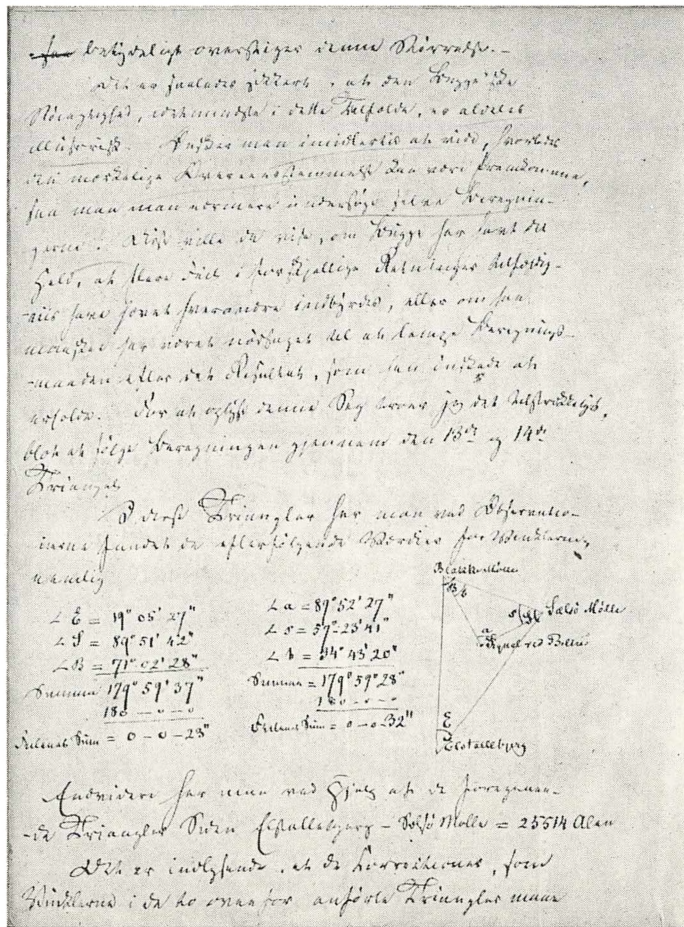 betydeligt overstiger denne Størrelse.-
Det er saaledes sikkert, at den Bugge'ske
Nøiagtighed, idetmindste i dette Tilfælde, er aldeles
illusorisk. Ønsker man imidlertid at vide, hvorledes
den mærkelige Overeensstemmelse kan være fremkommen,
saa maa man nærmere undersøge selve Beregnin-
gerne. Disse ville da vise, om Bugge har havt det
Held, at flere Feil i forskjellige Retninger tilfældig-
-viis have hævet hverandre indbyrdes, eller om han
maaskee har været nødsaget til at lempe Beregnings-
-maaden efter det Resultat, som han ønskede at
erholde. For at oplyse denne Sag troer jeg det tilstrækkeligt,
blot at følge Beregningen gjennem den 13de og 14de
Triangel.
I disse Triangler har man ved Observatio-
nerne fundet de efterfølgende Værdier for Vinklerne,
nemlig
∠ E = 19° 05' 27"
∠ S = 89° 51' 42"
∠ B = 71° 02' 28"
Summen 179° 59' 37"
180 - - 0 - - 0
Feilenes Sum = 0 - 0 - 23"
∠ a = 87° 52' 27"
∠ s = 57° 23' 41"
∠ b = 34° 43' 20"
Summen = 179° 59' 28"
180 - 0 - 0
Feilenes Sum = 0 - 0 - 32"
B b
S s Sølsø Mølle
a
Signal ved
E
Endvidere har man ved Hjelp af de foregaaen-
-de Triangler Siden - Sølsø Mølle = 25514 Alen
Det er indlysende, at de Correctioner, som
Vinklerne i de to ovenfor anførte Triangler maae